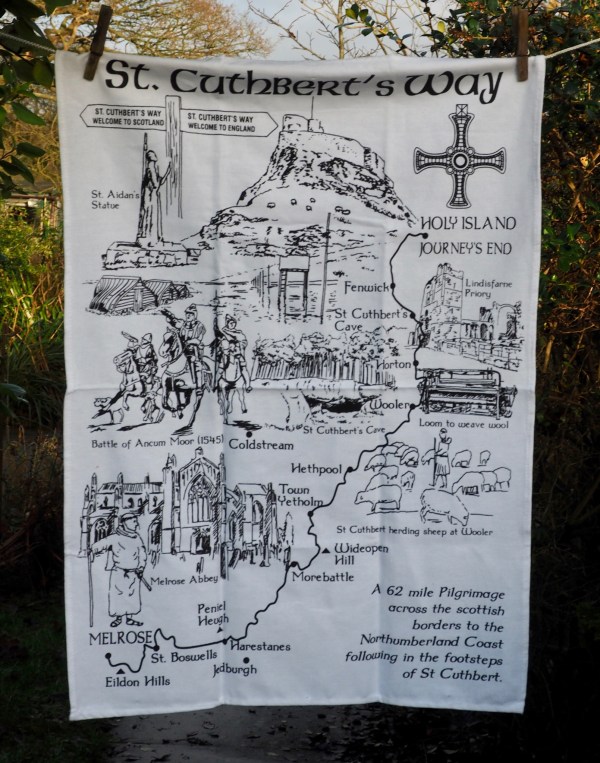 St. Cuthbert's Way
ST. CUTHBERT'S WAY
WELCOME TO SCOTLAND
ST. CUTHBERT'S WAY
WELCOME TO ENGLAND
St. Aidan's
Statue
HOLY ISLAND
JOURNEY'S END
Fenwick
Lindisfarne
Priory
St Cuthbert's
Cave
Horton
Wooler
Loom to weave wool
St Cuthbert's Cave
Battle of Ancum Moor (1545)
Coldstream
Hethpool
Town
Yetholm
St Cuthbert herding sheep at Wooler
Wideopen
Hill
Melrose Abbey
Morebattle
Peniel
Heugh
A 62 mile Pilgrimage
across the scottish
borders to the
Northumberland Coast
following in the footsteps
of St Cuthbert.
MELROSE
St. Boswells
Harestanes
Jedburgh
Eildon Hills